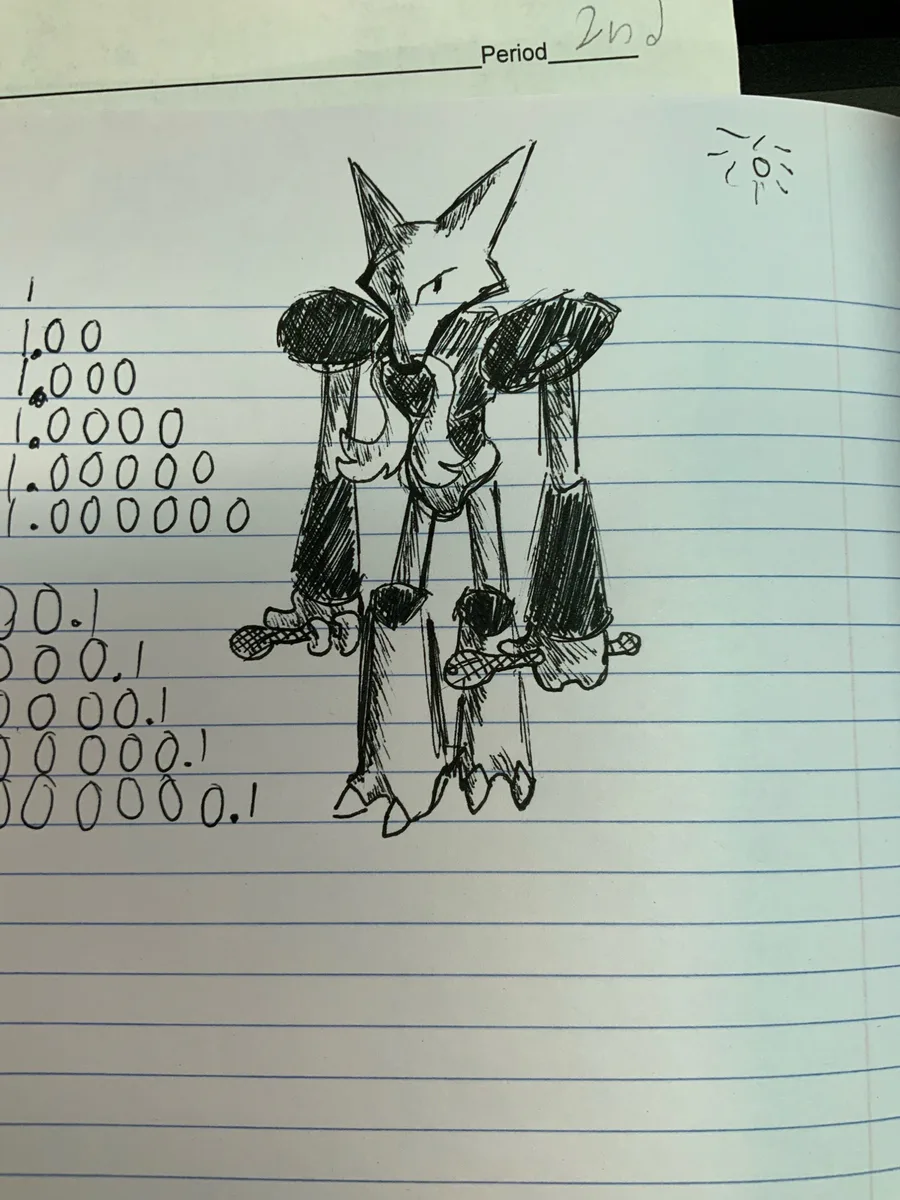 Period 2nd
1
1.00
1.000
1.0000
1.00000
1.000000
00.1
000.1
0000.1
00000.1
000000.1